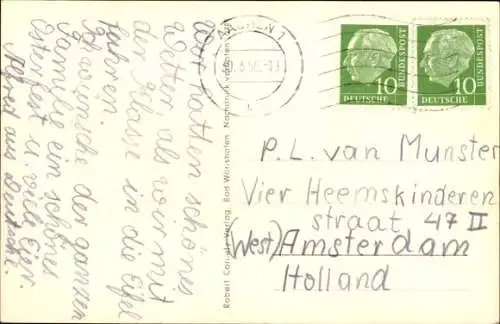 Wir hatten schönes
Wetter als wir mit
der Klasse in die Eifel
fuhren.
Ich wünsche der ganzen
Familie ein schönes
Osterfest u. viele Eier.
Alfred aus Deutschl.
Robert Verlag, Bad Wörishofen Nachdruck verboten
AACHEN 1
10
DEUTSCHE
BUNDESPOST
10
DEUTSCHE
BUNDESPOST
P.L. van Munster
Vier Heemskinderen
straat 47 II
(West) Amsterdam
Holland